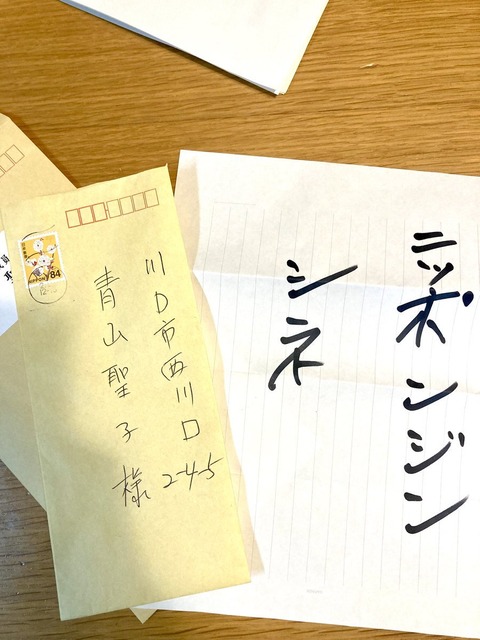 川口市西川口 2-4-5
青山聖子 様
84
ニッポンジン
シネ